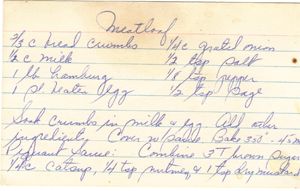 Meatloaf
2/3 c bread crumbs 1/4 c grated onion
2 c milk 1/2 tsp salt
1 lb hamburg 1/8 tsp pepper
1 beaten egg 1/2 tsp sage
Soak crumbs in milk & egg Add other
ingredients. Cover w/ sauce. Bake 350 - 45 m
Piquant sauce: Combine 3 T brown sugar
1/4 c catsup, 1/4 tsp nutmeg & 1 tsp dry mustard